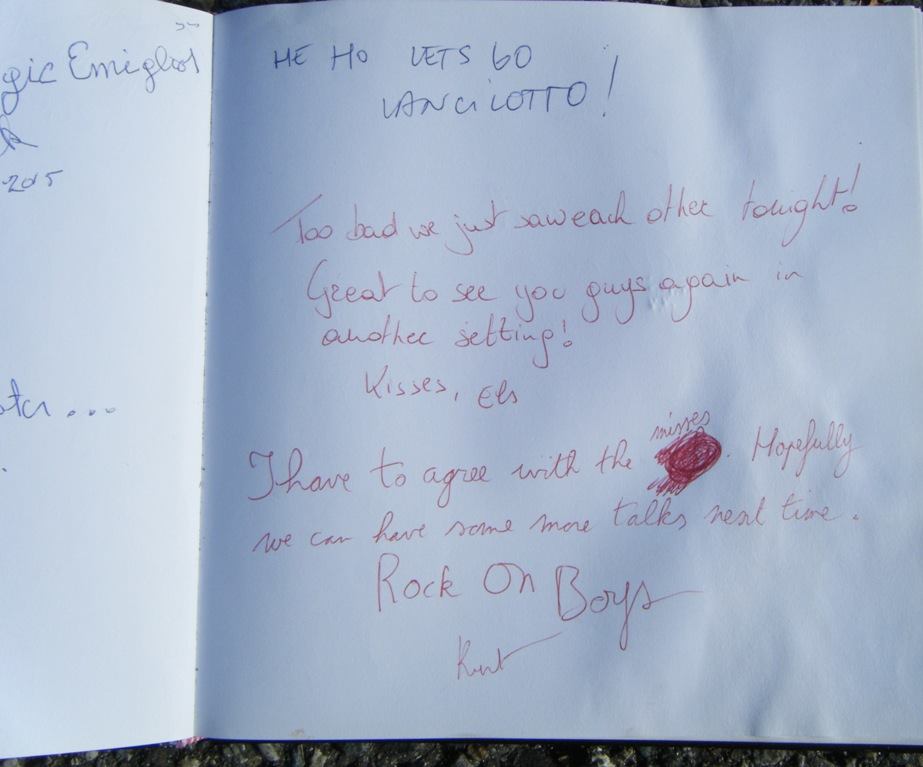 2015
...
HE HO LETS GO
LANCILOTTO!
Too bad we just saw each other tonight!
Great to see you guys again in
another setting!
Kisses, Els
I have to agree with the misses. Hopefully
we can have some more talks next time.
Rock On Boys